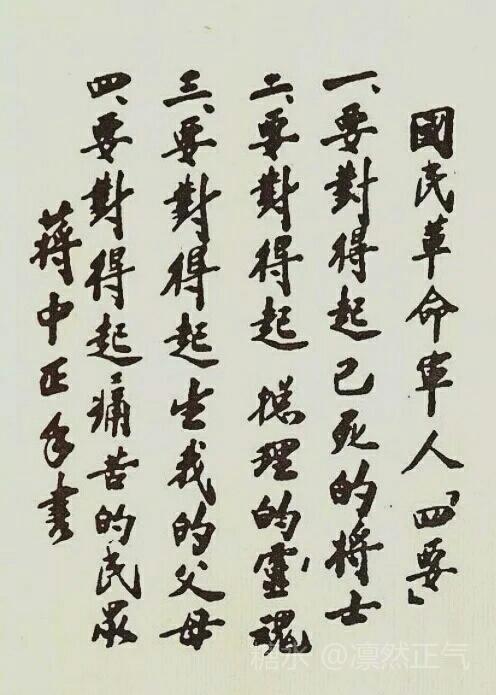 國民革命軍人「四要」
一、要對得起已死的將士
二、要對得起 總理的靈魂
三、要對得起生我的父母
四、要對得起痛苦的民眾
蔣中正手書
糖水 @凛然正气